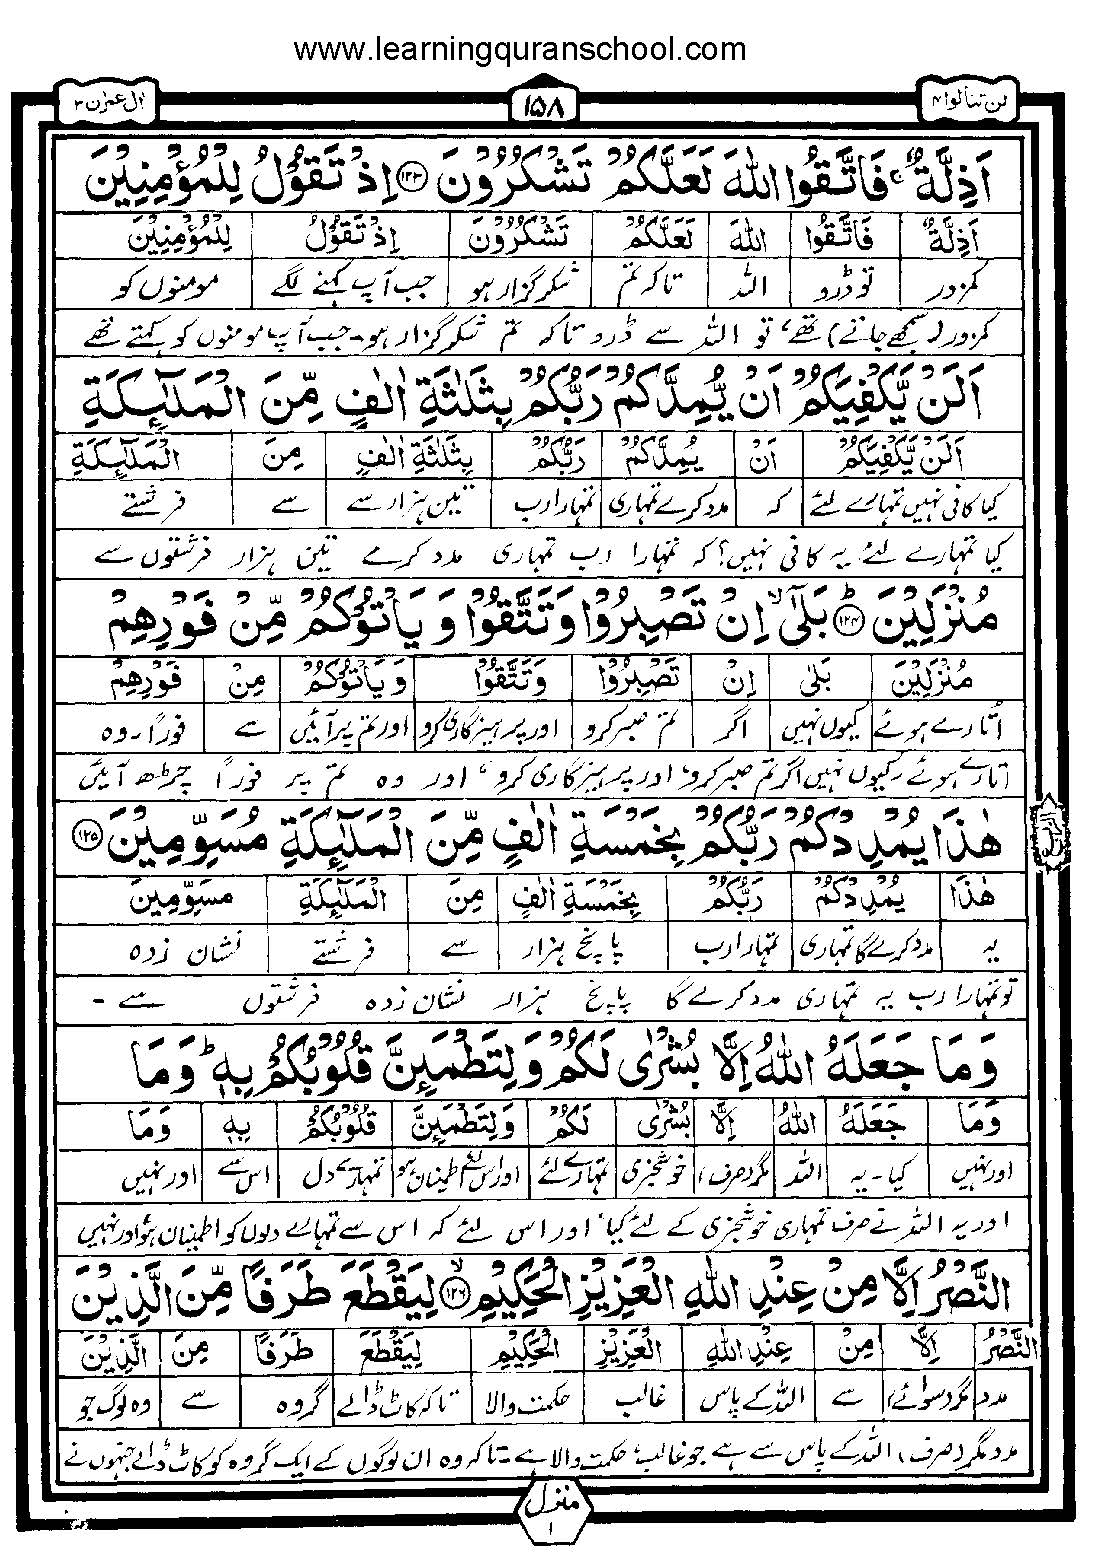 www.learningquranschool.com
لن تنالوا ۴ ۱۵۸ اٰل عمرٰن ۳
اَذِلَّةٌ ۚ فَاتَّقُوا اللّٰهَ لَعَلَّكُمْ تَشْكُرُوْنَ ۝۱۲۳ اِذْ تَقُوْلُ لِلْمُؤْمِنِيْنَ
اَذِلَّةٌ فَاتَّقُوا اللّٰهَ لَعَلَّكُمْ تَشْكُرُوْنَ اِذْ تَقُوْلُ لِلْمُؤْمِنِيْنَ
کمزور تو ڈرو اللہ تاکہ تم شکر گزار ہو جب آپ کہنے لگے مومنوں کو
کمزور (سمجھے جاتے) تھے، تو اللہ سے ڈرو تاکہ تم شکر گزار ہو۔ جب آپ مومنوں کو کہتے تھے
اَلَنْ يَّكْفِيَكُمْ اَنْ يُّمِدَّكُمْ رَبُّكُمْ بِثَلٰثَةِ اٰلٰفٍ مِّنَ الْمَلٰٓئِكَةِ
اَلَنْ يَّكْفِيَكُمْ اَنْ يُمِدَّكُمْ رَبُّكُمْ بِثَلٰثَةِ اٰلٰفٍ مِنَ الْمَلٰٓئِكَةِ
کیا کافی نہیں تمہارے لئے کہ مدد کرے تمہاری تمہارا رب تین ہزار سے سے فرشتے
کیا تمہارے لئے یہ کافی نہیں؟ کہ تمہارا رب تمہاری مدد کرے تین ہزار فرشتوں سے
مُنْزَلِيْنَ ۝۱۲۴ بَلٰٓى ۙ اِنْ تَصْبِرُوْا وَتَتَّقُوْا وَيَاْتُوْكُمْ مِّنْ فَوْرِهِمْ
مُنْزَلِيْنَ بَلٰى اِنْ تَصْبِرُوْا وَتَتَّقُوْا وَيَاْتُوْكُمْ مِنْ فَوْرِهِمْ
اُتارے ہوئے کیوں نہیں اگر تم صبر کرو اور پرہیزگاری کرو اور تم پر آئیں سے فوراً۔ وہ
اتارے ہوئے، کیوں نہیں اگر تم صبر کرو، اور پرہیزگاری کرو، اور وہ تم پر فوراً چڑھ آئیں
هٰذَا يُمْدِدْكُمْ رَبُّكُمْ بِخَمْسَةِ اٰلٰفٍ مِّنَ الْمَلٰٓئِكَةِ مُسَوِّمِيْنَ ۝۱۲۵
هٰذَا يُمْدِدْكُمْ رَبُّكُمْ بِخَمْسَةِ اٰلٰفٍ مِنَ الْمَلٰٓئِكَةِ مُسَوِّمِيْنَ
یہ مدد کرے گا تمہاری تمہارا رب پانچ ہزار سے فرشتے نشان زدہ
تو تمہارا رب یہ تمہاری مدد کرے گا پانچ ہزار نشان زدہ فرشتوں سے۔
وَمَا جَعَلَهُ اللّٰهُ اِلَّا بُشْرٰى لَكُمْ وَلِتَطْمَئِنَّ قُلُوْبُكُمْ بِهٖ ؕ وَمَا
وَمَا جَعَلَهُ اللّٰهُ اِلَّا بُشْرٰى لَكُمْ وَلِتَطْمَئِنَّ قُلُوْبُكُمْ بِهٖ وَمَا
اور نہیں کیا۔ یہ اللہ مگر (صرف) خوشخبری تمہارے لئے اور اس لئے اطمینان ہو تمہارے دل اس سے اور نہیں
اور یہ اللہ نے صرف تمہاری خوشخبری کے لئے کیا، اور اس لئے کہ اس سے تمہارے دلوں کو اطمینان ہو، اور نہیں
النَّصْرُ اِلَّا مِنْ عِنْدِ اللّٰهِ الْعَزِيْزِ الْحَكِيْمِ ۙ۝۱۲۶ لِيَقْطَعَ طَرَفًا مِّنَ الَّذِيْنَ
النَّصْرُ اِلَّا مِنْ عِنْدِ اللّٰهِ الْعَزِيْزِ الْحَكِيْمِ لِيَقْطَعَ طَرَفًا مِنَ الَّذِيْنَ
مدد مگر (سوائے) سے اللہ کے پاس غالب حکمت والا تاکہ کاٹ ڈالے گروہ سے وہ لوگ جو
مدد مگر (صرف) اللہ کے پاس سے ہے جو غالب، حکمت والا ہے۔ تاکہ وہ ان لوگوں کے ایک گروہ کو کاٹ ڈالے جنہوں نے
منزل ۱